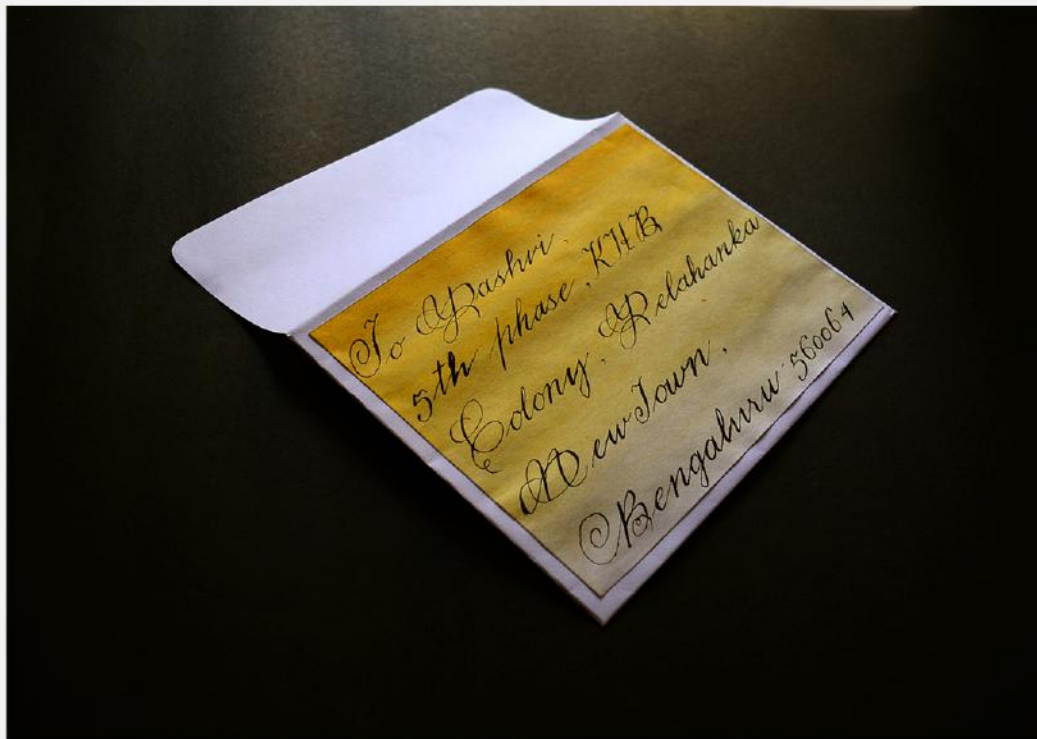 To Yashvi.
5th phase, KHB
Colony, Yelahanka
New Town,
Bengaluru 560064